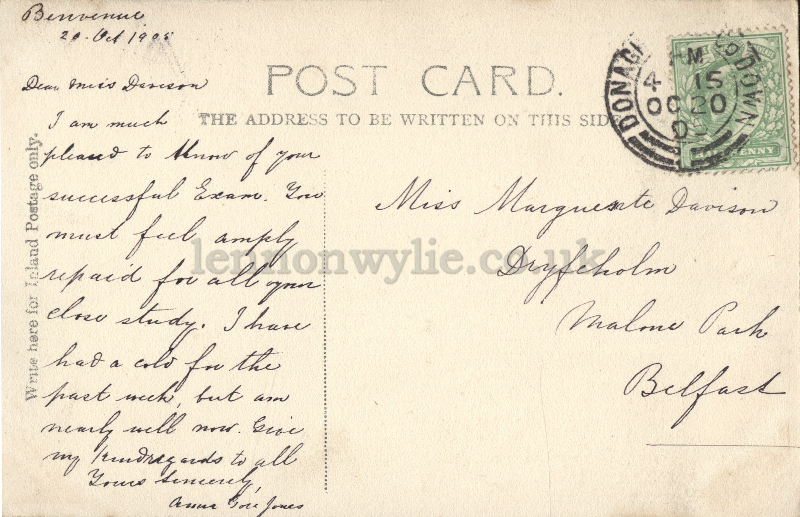 Benvenue
20. Oct 1905
Dear Miss Davison
I am much
pleased to know of your
successful Exam. You
must feel amply
repaid for all your
close study. I have
had a cold for the
past week, but am
nearly well now. Give
my kind regards to all
Yours sincerely,
Gore Jones
Write here for Inland Postage only.
POST CARD.
THE ADDRESS TO BE WRITTEN ON THIS SIDE
DONAG
DOWN
M
4 15
OC 20
0
PENNY
Miss Marguerite Davison
Dryfeholm
Malone Park
Belfast
lennonwylie.co.uk